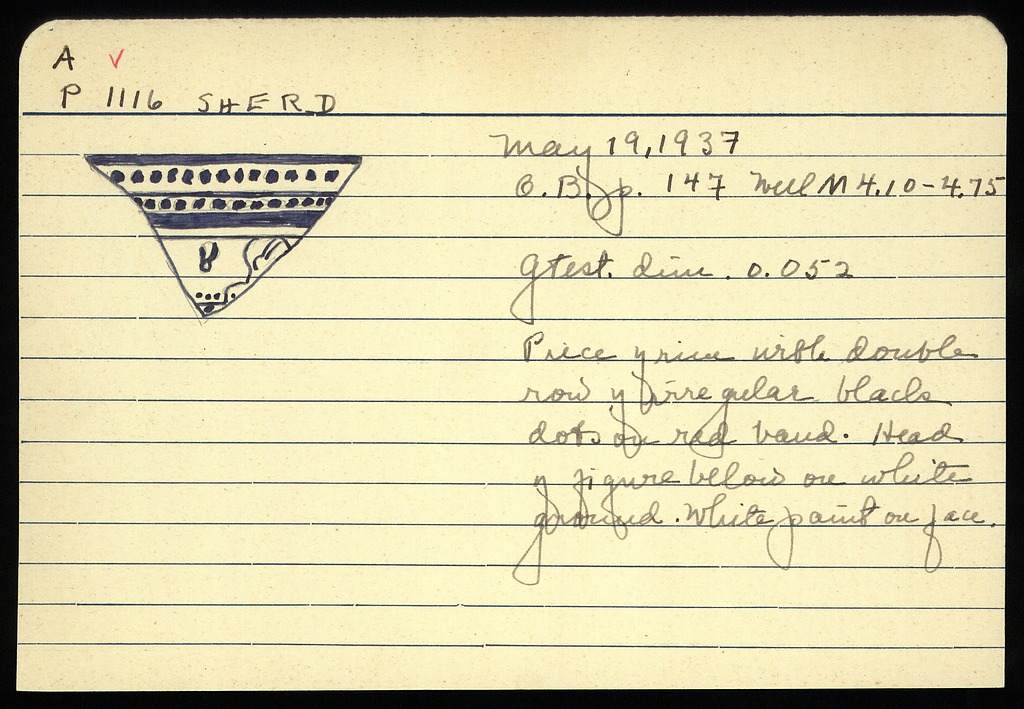 A ✓
P 1116 SHERD
May 19, 1937
O.B. p. 147 Well M 4.10-4.75
Gtest. dim. 0.052
Piece of rim with double
row of irregular black
dots on red band. Head
of figure below on white
ground. White paint on face.